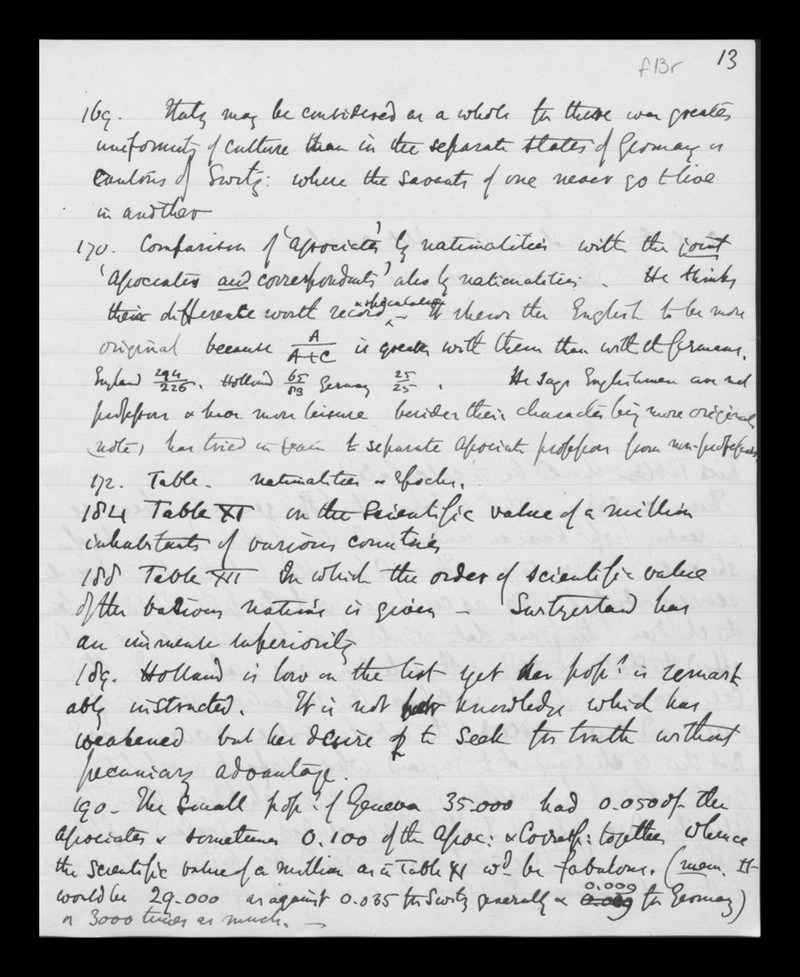 f13r 13
169. Italy may be considered as a whole for there was greater
uniformity of culture than in the separate states of Germany or
Cantons of Switz: where the savants of one never go & live
in another
170. Comparison of 'Associates' by nationalities with the joint
'Associates and correspondents' also by nationalities. He thinks
their difference worth record It shews the English to be more
original because A/A+C is greater with them than with the Germans.
England 294/226. Holland 65/89 Germany 25/25. He says Englishmen are not
professors & have more leisure besides their character being more original
(note, has tried in vain to separate Associate professors from non-professors
172. Table. nationalities & epochs.
184 Table XI on the Scientific value of a million
inhabitants of various countries
188 Table XII In which the order of scientific value
of the various nations is given – Switzerland has
an immense superiority
189. Holland is low on the list yet her popn. is remark
ably instructed. It is not her knowledge which has
weakened but her desire to seek for truth without
pecuniary advantage.
190 – The small popn: of Geneva 35.000 had 0.050 of the
Associates & sometimes 0.100 of the Assoc: & Corresp: together whence
the scientific value of a million as in Table XI wd be fabulous. (mem. It
would be 29.000 as against 0.035 for Switz generally & 0.009 for Germany)
or 3000 times as much. –